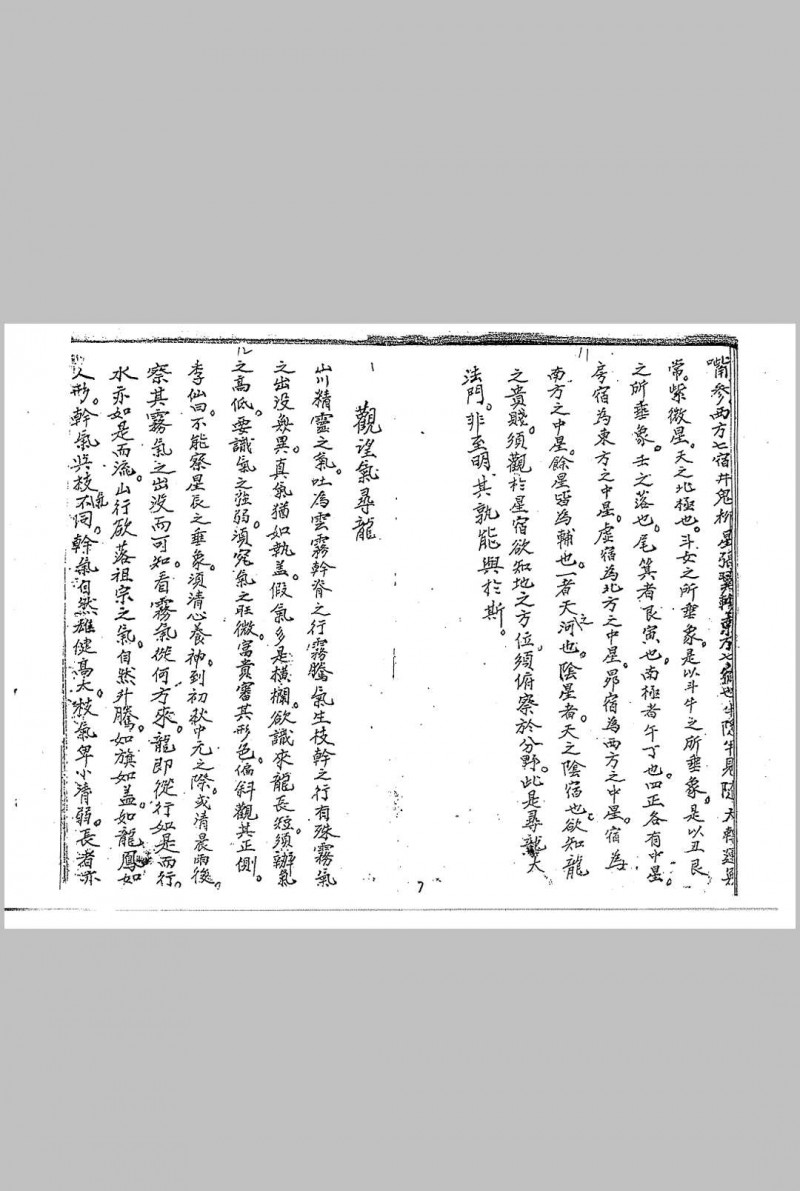 嘴参西方七宿井鬼柳星張翼軫東方七宿也
常。紫微星。天之北極也。斗女之所垂象。是以斗牛之所垂象。是以丑艮
之所垂象。壬之落也。尾箕者艮寅。也。南極者午丁也。四正各有中星。
房宿為東方之中星。虛宿為北方之中星。昴宿為西方之中星。宿為
南方之中星。餘星皆為輔也。一者天河之也。陰星者。天之陰宿也。欲知龍
之貴賤。須觀於星宿欲知地之方位。須俯察於分野。此是尋龍大
法門。非至明。其孰能與於斯。
觀望氣尋龍
山川精靈之氣。吐為雲霧幹脊之行霧騰氣生枝幹之行有殊霧氣
之出没無異。真氣猶如執盖。假氣多是橫欄。欲識來龍長短。須辦氣
之高低。要識氣之強弱。須究氣之旺微。富貴審其形色。偏斜觀其正側。
李仙曰。不能察星辰之垂象。須清心養神。到初秋中元之際。或清晨雨後。
察其霧氣之出没而可知。看霧氣從何方來。龍即從行如是而行。
水亦如是而流。山行欲落祖宗之氣。自然升騰。如旗如盖。如龍鳳如
人形。幹氣與枝氣不同。幹氣自然雄健高大。枝氣卑小清弱。長者亦
7